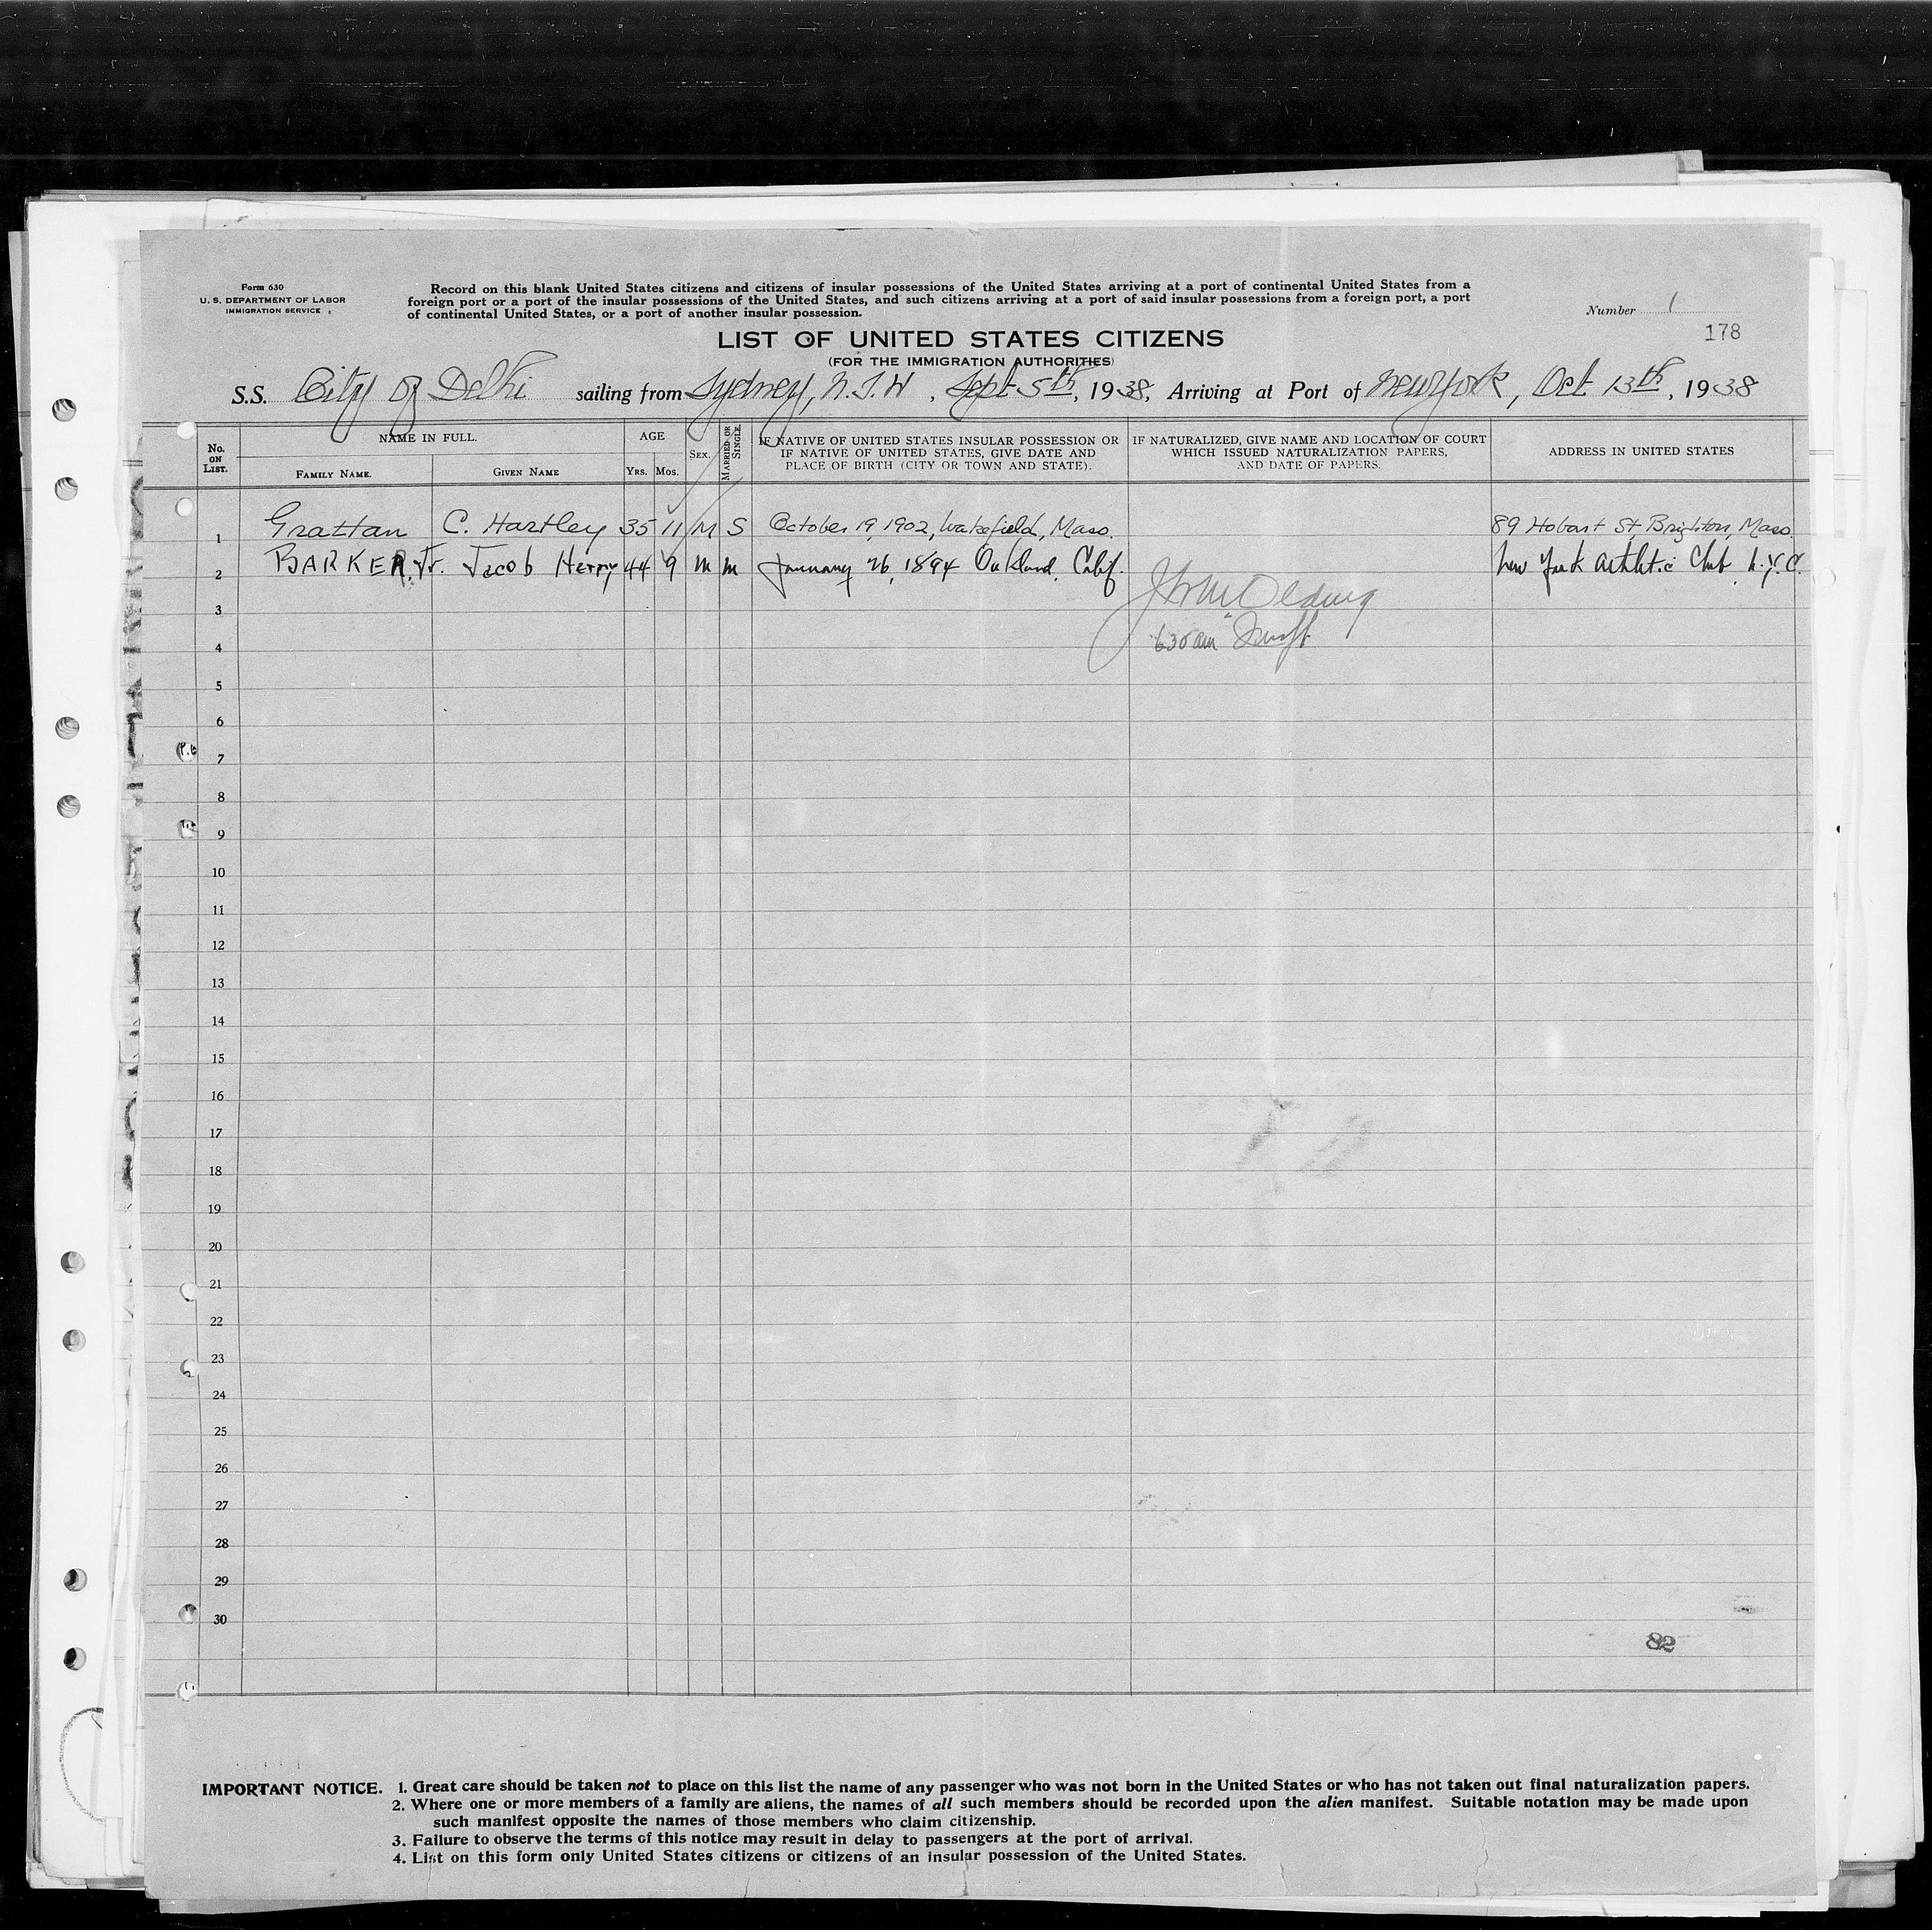 Form 630
U. S. DEPARTMENT OF LABOR
IMMIGRATION SERVICE
Record on this blank United States citizens and citizens of insular possessions of the United States arriving at a port of continental United States from a
foreign port or a port of the insular possessions of the United States, and such citizens arriving at a port of said insular possessions from a foreign port, a port
of continental United States, or a port of another insular possession.
Number 1
178
LIST OF UNITED STATES CITIZENS
(FOR THE IMMIGRATION AUTHORITIES)
S.S. City of Delhi sailing from Sydney, N.S.W, Sept 5th, 1938, Arriving at Port of New York, Oct 13th, 1938
No. ON LIST. NAME IN FULL. AGE SEX. MARRIED OR SINGLE. IF NATIVE OF UNITED STATES INSULAR POSSESSION OR IF NATURALIZED, GIVE NAME AND LOCATION OF COURT ADDRESS IN UNITED STATES
IF NATIVE OF UNITED STATES, GIVE DATE AND WHICH ISSUED NATURALIZATION PAPERS,
PLACE OF BIRTH (CITY OR TOWN AND STATE). AND DATE OF PAPERS.
FAMILY NAME. GIVEN NAME YRS. MOS.
1 Grattan C. Hartley 35 11 M S October 19, 1902, Wakefield, Mass. 89 Hobart St, Brighton, Mass.
2 BARKER, Jr. Jacob Henry 44 9 m m January 26, 1894 Oakland, Calif. New York Athletic Club N.Y.C.
3
4 630 am
5
6
7
8
9
10
11
12
13
14
15
16
17
18
19
20
21
22
23
24
25
26
27
28
29
30
82
IMPORTANT NOTICE. 1. Great care should be taken not to place on this list the name of any passenger who was not born in the United States or who has not taken out final naturalization papers.
2. Where one or more members of a family are aliens, the names of all such members should be recorded upon the alien manifest. Suitable notation may be made upon
such manifest opposite the names of those members who claim citizenship.
3. Failure to observe the terms of this notice may result in delay to passengers at the port of arrival.
4. List on this form only United States citizens or citizens of an insular possession of the United States.